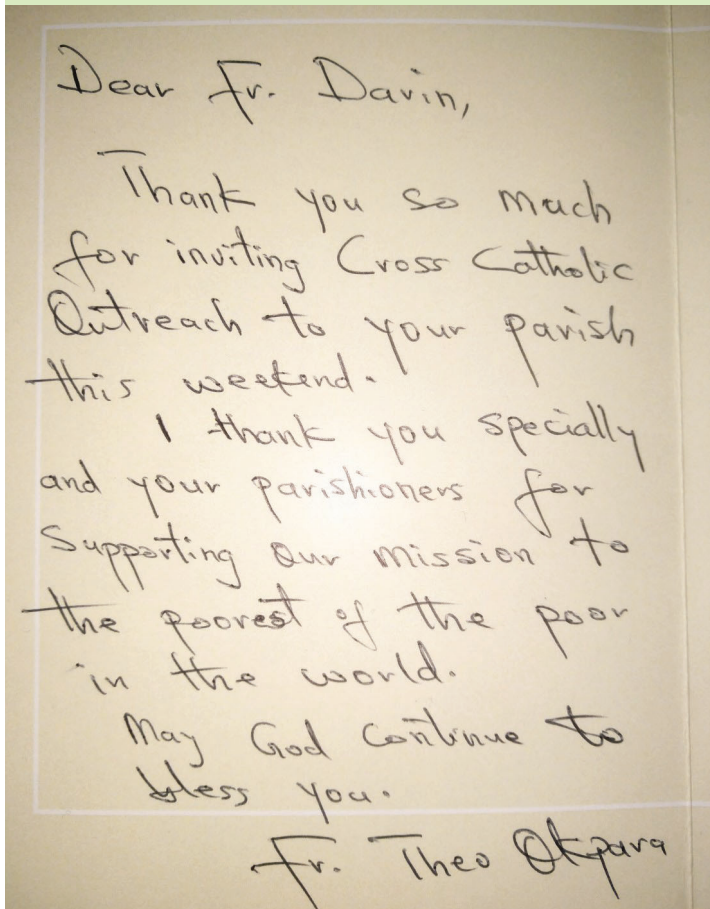 Dear Fr. Davin,
Thank you so much
for inviting Cross Catholic
Outreach to your parish
this weekend.
I thank you specially
and your parishioners for
Supporting our mission to
the poorest of the poor
in the world.
May God continue to
bless you.
Fr. Theo Okpara